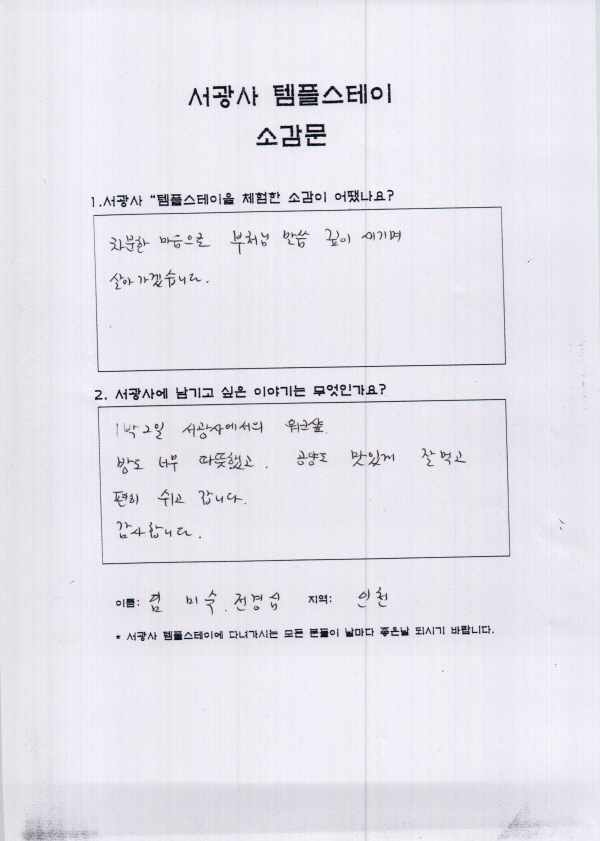 서광사 템플스테이
소감문
1.서광사 “템플스테이을 체험한 소감이 어땠나요?
차분한 마음으로 부처님 말씀 깊이 새기며
살아가겠습니다.
2. 서광사에 남기고 싶은 이야기는 무엇인가요?
1박2일 서광사에서의 워크샾.
방도 너무 따뜻했고. 공양도 맛있게 잘먹고
편히 쉬고 갑니다.
감사합니다.
이름: 염 미숙.전경심 지역: 인천
* 서광사 템플스테이에 다녀가시는 모든 분들이 날마다 좋은날 되시기 바랍니다.